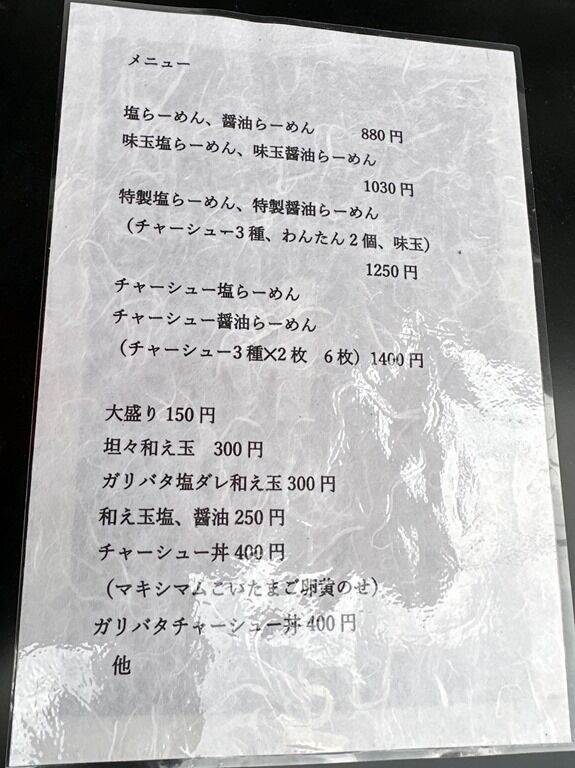 メニュー
塩らーめん、醤油らーめん　880円
味玉塩らーめん、味玉醤油らーめん
1030円
特製塩らーめん、特製醤油らーめん
（チャーシュー3種、わんたん2個、味玉）
1250円
チャーシュー塩らーめん
チャーシュー醤油らーめん
（チャーシュー3種✕2枚　6枚）1400円
大盛り150円
坦々和え玉　300円
ガリバタ塩ダレ和え玉300円
和え玉塩、醤油250円
チャーシュー丼400円
（マキシマムこいたまご卵黄のせ）
ガリバタチャーシュー丼400円
他